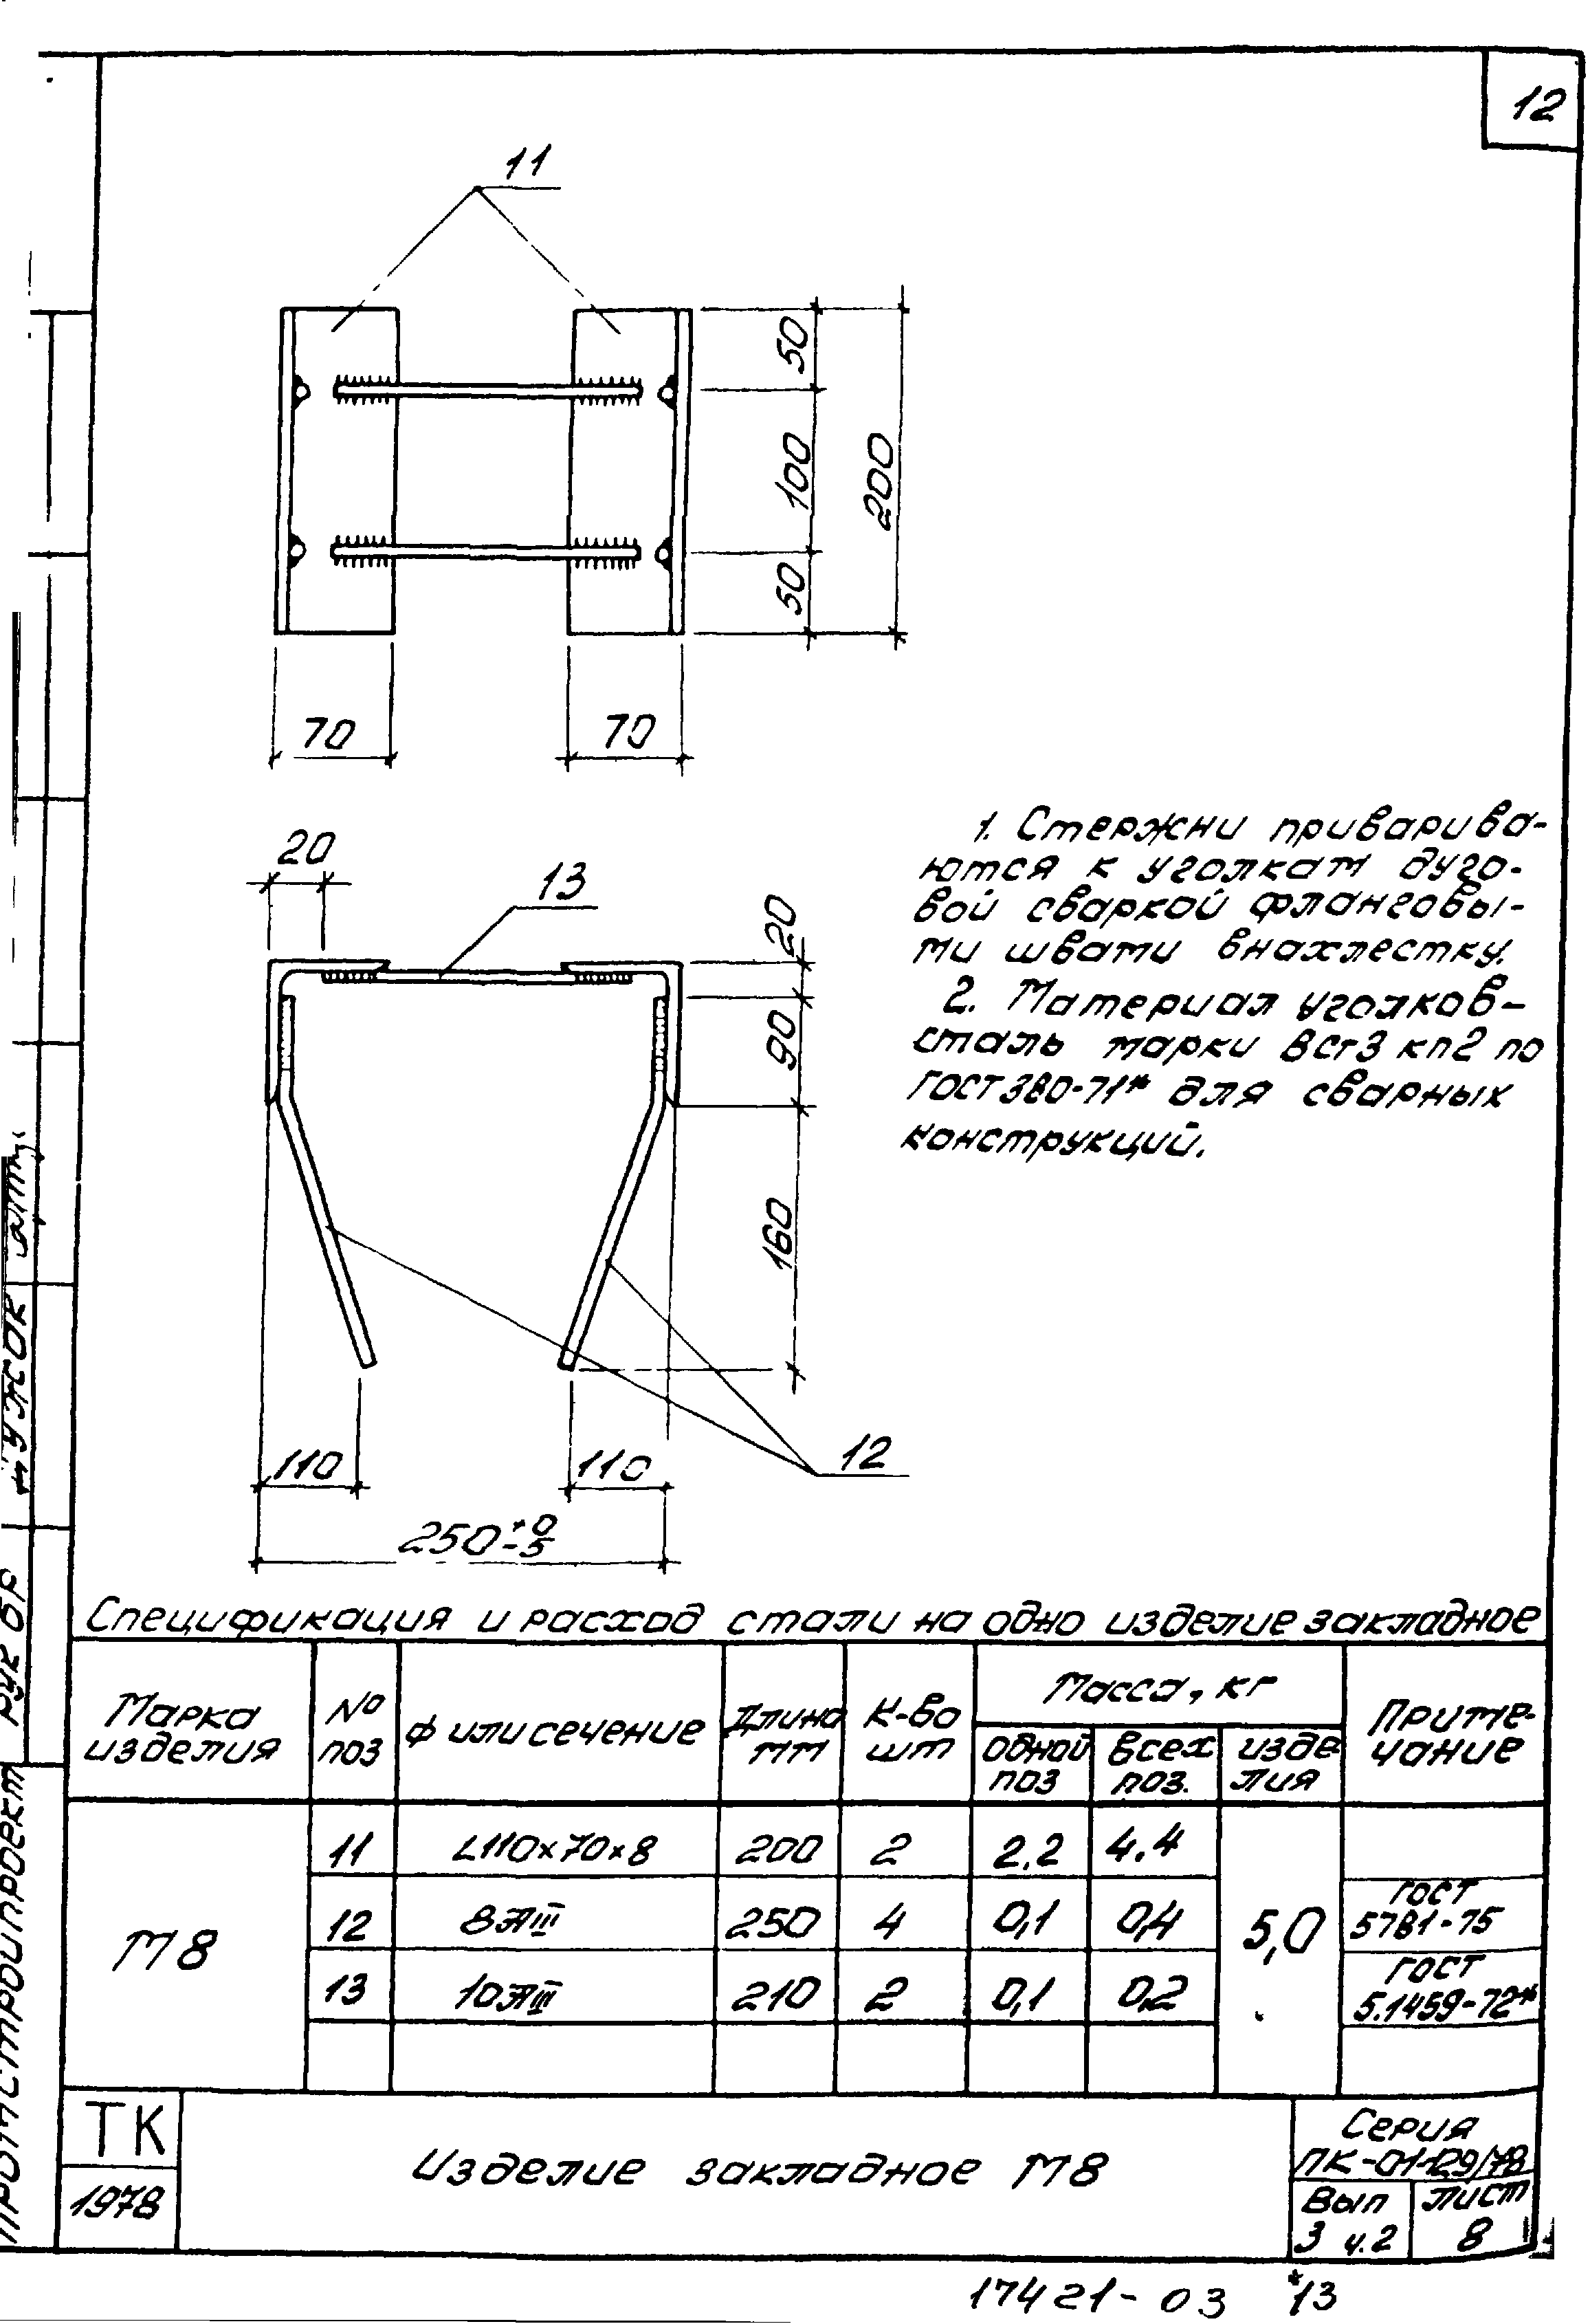 12
11
50
100
50
200
70
70
20
13
20
90
160
12
110
110
250 +0 -5
1. Стержни приварива-
ются к уголкам дуго-
вой сваркой фланговы-
ми швами внахлестку.
2. Материал уголков-
сталь марки ВСт3 кп2 по
ГОСТ 380-71* для сварных
конструкций.
Спецификация и расход стали на одно изделие закладное
Марка изделия
№ поз
Ф или сечение
Длина мм
К-во шт
Масса, кг
одной поз
всех поз.
изде-лия
Приме-чание
М8
11 L110×70×8 200 2 2,2 4.4
12 8АIII 250 4 0,1 0,4 5,0 ГОСТ 5781-75
13 10АIII 210 2 0,1 0,2 ГОСТ 5.1459-72*
ТК
1978
Изделие закладное М8
Серия
ПК-01-129/78
Вып
3 ч.2
Лист
8
17421-03 *13
Рук бр